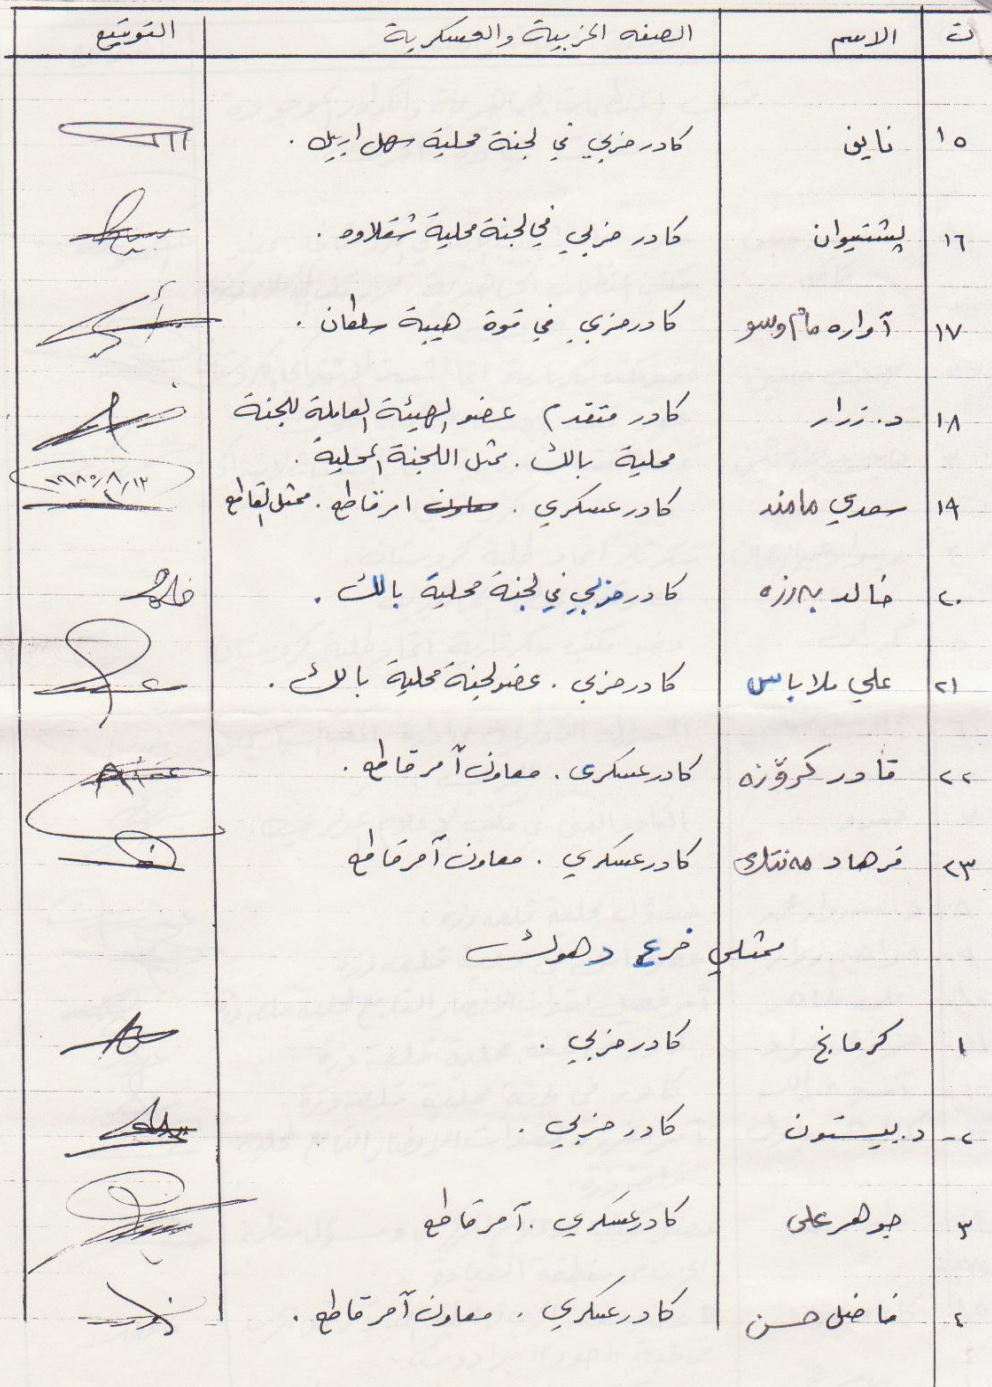 ت الاسم الصفه الحزبية والعسكرية التوقيع
١٥ نايف كادر حزبي في لجنة محلية سهل اربيل .
١٦ پشتيوان كادر حزبي في لجنة محلية شقلاوه .
١٧ آواره مام وسو كادر حزبي في قوة هيبة سلطان .
١٨ د. نزار كادر متقدم عضو الهيئة العاملة للجنة
محلية بالك . ممثل اللجنة المحلية .
١٩ سعدي مامند كادر عسكري . امر قاطع . ممثل القاطع ١٩٨٥/٨/١٢
٢٠ خالد به رزه كادر حزبي في لجنة محلية بالك .
٢١ علي ملا باس كادر حزبي . عضو لجنة محلية بالك .
٢٢ قادر كرۆزه كادر عسكري . معاون آمر قاطع .
٢٣ فرهاد مه نتك كادر عسكري . معاون آمر قاطع
ممثلي فرع دهوك
١ كرمانج كادر حزبي .
٢- د. بيستون كادر حزبي .
٣ جوهر على كادر عسكري . آمر قاطع
٤ فاضل حسن كادر عسكري . معاون آمر قاطع .